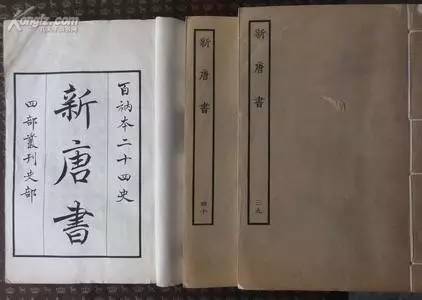 Kongfz.com
百衲本二十四史
新唐書
四部叢刊史部
新唐書
四十
新唐書
三九